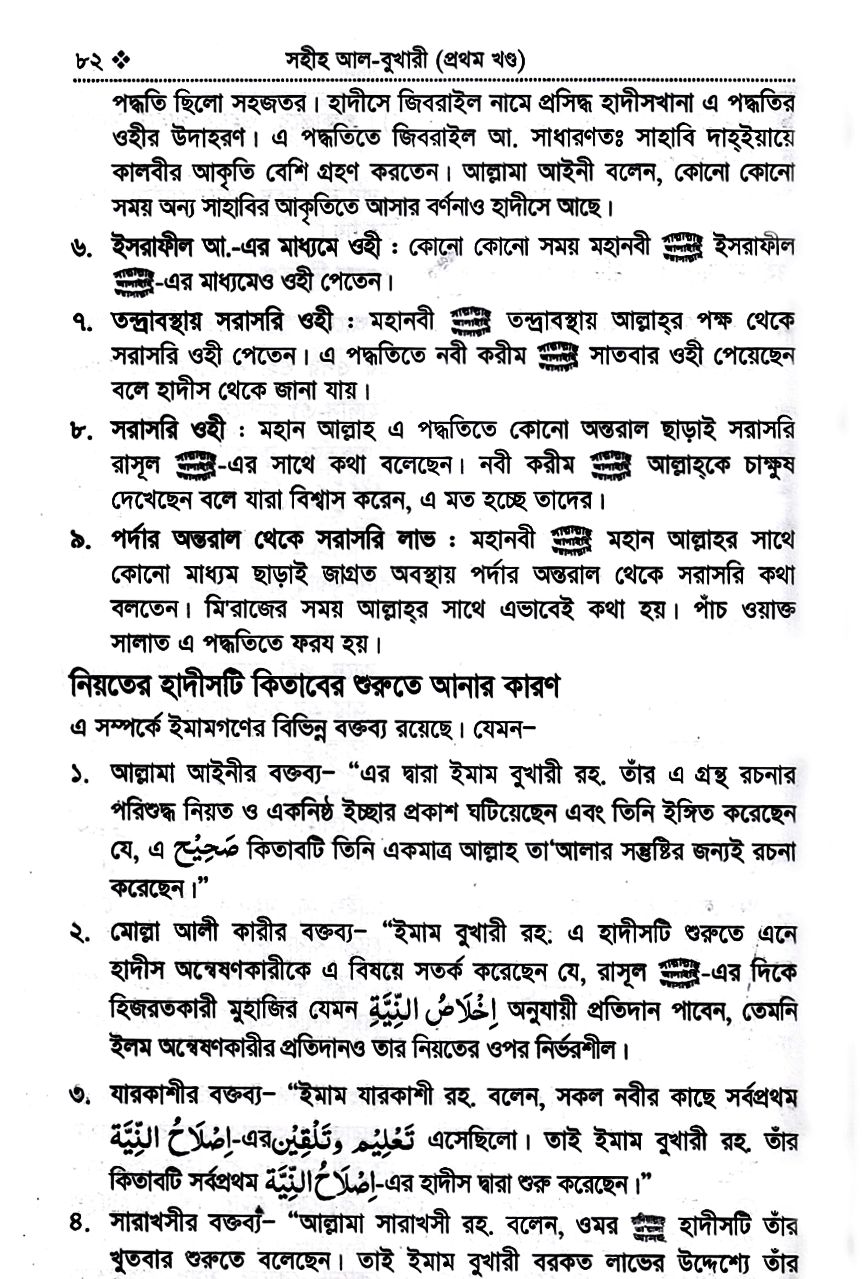 ৮২ ❖ সহীহ আল-বুখারী (প্রথম খণ্ড)
পদ্ধতি ছিলো সহজতর। হাদীসে জিবরাইল নামে প্রসিদ্ধ হাদীসখানা এ পদ্ধতির
ওহীর উদাহরণ। এ পদ্ধতিতে জিবরাইল আ. সাধারণতঃ সাহাবি দাহ্ইয়ায়ে
কালবীর আকৃতি বেশি গ্রহণ করতেন। আল্লামা আইনী বলেন, কোনো কোনো
সময় অন্য সাহাবির আকৃতিতে আসার বর্ণনাও হাদীসে আছে।
৬. ইসরাফীল আ.-এর মাধ্যমে ওহী : কোনো কোনো সময় মহানবী সাল্লাল্লাহু আলাইহি ওয়াসাল্লাম ইসরাফীল
সাল্লাল্লাহু আলাইহি ওয়াসাল্লাম-এর মাধ্যমেও ওহী পেতেন।
৭. তন্দ্রাবস্থায় সরাসরি ওহী : মহানবী সাল্লাল্লাহু আলাইহি ওয়াসাল্লাম তন্দ্রাবস্থায় আল্লাহ্‌র পক্ষ থেকে
সরাসরি ওহী পেতেন। এ পদ্ধতিতে নবী করীম সাল্লাল্লাহু আলাইহি ওয়াসাল্লাম সাতবার ওহী পেয়েছেন
বলে হাদীস থেকে জানা যায়।
৮. সরাসরি ওহী : মহান আল্লাহ এ পদ্ধতিতে কোনো অন্তরাল ছাড়াই সরাসরি
রাসূল সাল্লাল্লাহু আলাইহি ওয়াসাল্লাম-এর সাথে কথা বলেছেন। নবী করীম সাল্লাল্লাহু আলাইহি ওয়াসাল্লাম আল্লাহ্‌কে চাক্ষুষ
দেখেছেন বলে যারা বিশ্বাস করেন, এ মত হচ্ছে তাদের।
৯. পর্দার অন্তরাল থেকে সরাসরি লাভ : মহানবী সাল্লাল্লাহু আলাইহি ওয়াসাল্লাম মহান আল্লাহর সাথে
কোনো মাধ্যম ছাড়াই জাগ্রত অবস্থায় পর্দার অন্তরাল থেকে সরাসরি কথা
বলতেন। মি'রাজের সময় আল্লাহ্‌র সাথে এভাবেই কথা হয়। পাঁচ ওয়াক্ত
সালাত এ পদ্ধতিতে ফরয হয়।
নিয়তের হাদীসটি কিতাবের শুরুতে আনার কারণ
এ সম্পর্কে ইমামগণের বিভিন্ন বক্তব্য রয়েছে। যেমন–
১. আল্লামা আইনীর বক্তব্য– “এর দ্বারা ইমাম বুখারী রহ. তাঁর এ গ্রন্থ রচনার
পরিশুদ্ধ নিয়ত ও একনিষ্ঠ ইচ্ছার প্রকাশ ঘটিয়েছেন এবং তিনি ইঙ্গিত করেছেন
যে, এ صَحِيْح কিতাবটি তিনি একমাত্র আল্লাহ তা‘আলার সন্তুষ্টির জন্যই রচনা
করেছেন।”
২. মোল্লা আলী কারীর বক্তব্য– “ইমাম বুখারী রহ. এ হাদীসটি শুরুতে এনে
হাদীস অন্বেষণকারীকে এ বিষয়ে সতর্ক করেছেন যে, রাসূল সাল্লাল্লাহু আলাইহি ওয়াসাল্লাম-এর দিকে
হিজরতকারী মুহাজির যেমন إِخْلَاصُ النِّيَّةِ অনুযায়ী প্রতিদান পাবেন, তেমনি
ইলম অন্বেষণকারীর প্রতিদানও তার নিয়তের ওপর নির্ভরশীল।
৩. যারকাশীর বক্তব্য– “ইমাম যারকাশী রহ. বলেন, সকল নবীর কাছে সর্বপ্রথম
إِصْلَاحُ النِّيَّة-এর تَعْلِيْم وتَلْقِيْن এসেছিলো। তাই ইমাম বুখারী রহ. তাঁর
কিতাবটি সর্বপ্রথম إِصْلَاحُ النِّيَّة-এর হাদীস দ্বারা শুরু করেছেন।”
৪. সারাখসীর বক্তব্য– “আল্লামা সারাখসী রহ. বলেন, ওমর হাদীসটি তাঁর
খুতবার শুরুতে বলেছেন। তাই ইমাম বুখারী বরকত লাভের উদ্দেশ্যে তাঁর